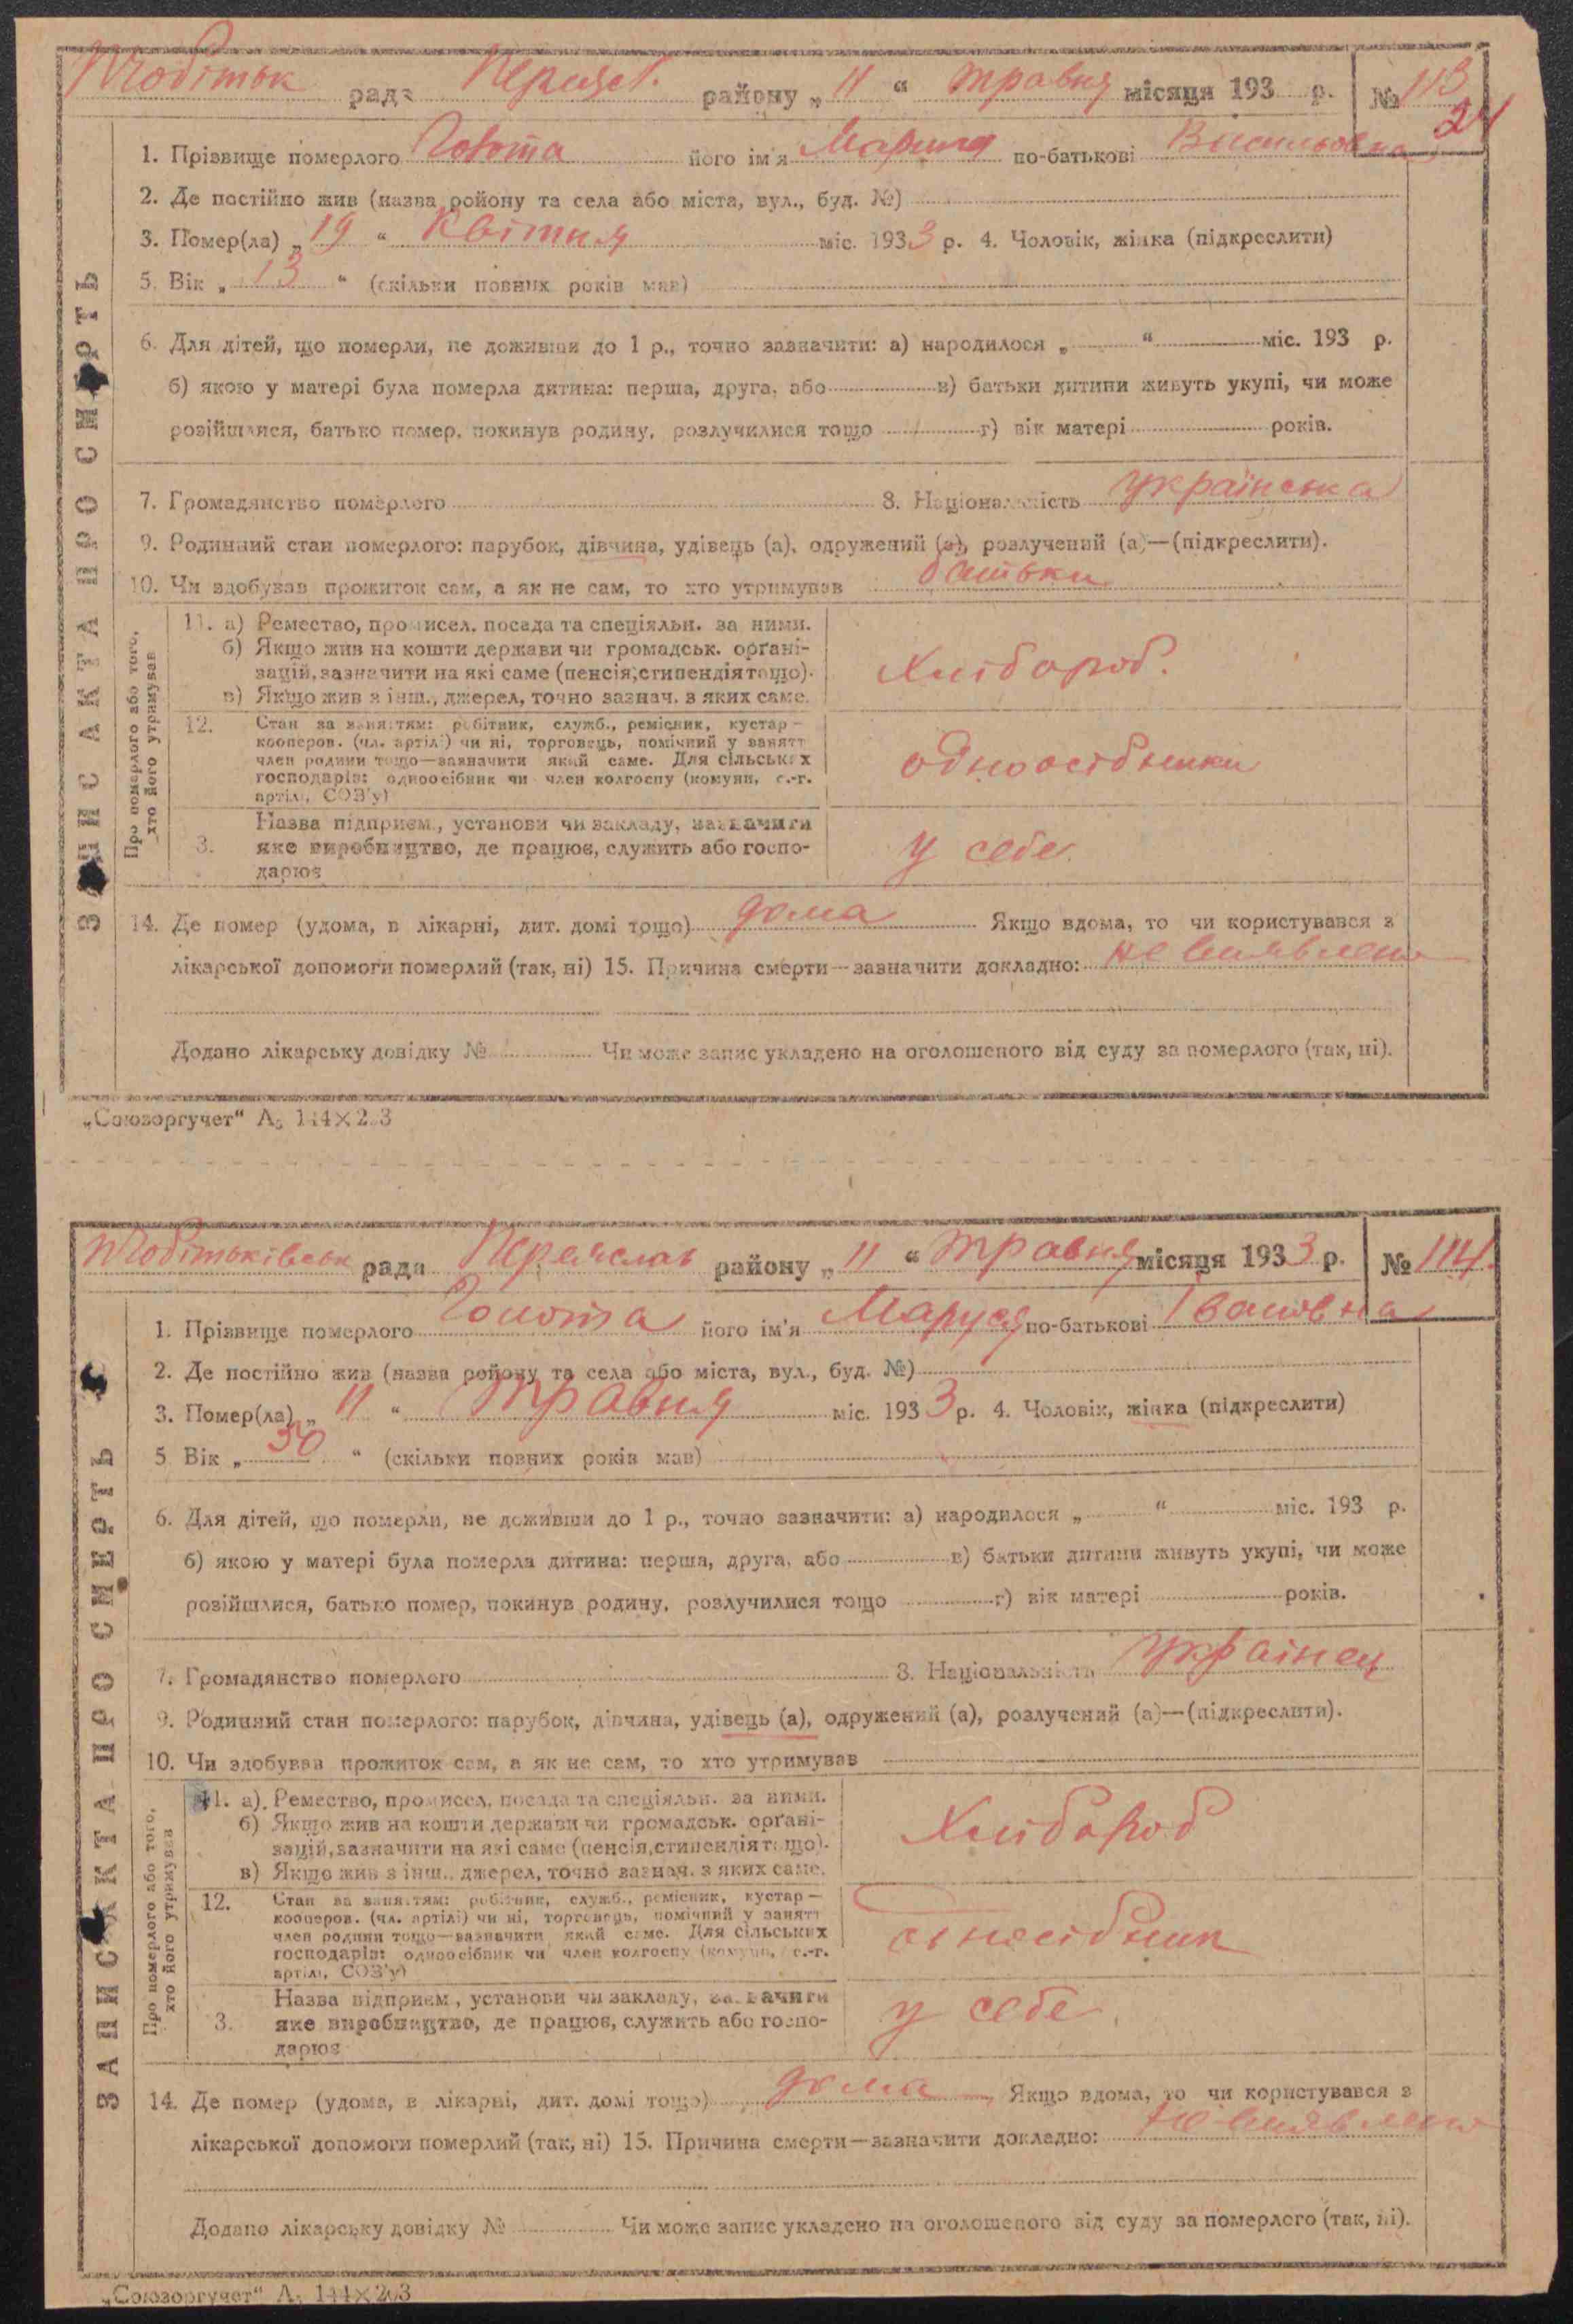 рада Переясл. району „ 11 “ травня місяця 193 р. № 113
24
1. Прізвище померлого його ім'я по-батькові Васильовна
2. Де постійно жив (назва ройону та села або міста, вул., буд. №)
3. Помер(ла) „ 19 “ Квітня міс. 1933 р. 4. Чоловік, жінка (підкреслити)
5. Вік „ 13 “ (скільки повних років мав)
6. Для дітей, що померли, не доживши до 1 р., точно зазначити: а) народилося „ “ міс. 193 р.
б) якою у матері була померла дитина: перша, друга, або в) батьки дитини живуть укупі, чи може
розійшлися, батько помер, покинув родину, розлучилися тощо г) вік матері років.
7. Громадянство померлого 8. Національність українська
9. Родинний стан померлого: парубок, дівчина, удівець (а), одружений (а), розлучений (а)—(підкреслити).
10. Чи здобував прожиток сам, а як не сам, то хто утримував батьки
ЗАПИС АКТА ПРО СМЕРТЬ
Про померлого або того, хто його утримував
11. а) Ремество, промисел, посада та спеціяльн. за ними.
б) Якщо жив на кошти держави чи громадськ. орґані-
зацій, зазначити на які саме (пенсія, стипендія тощо).
в) Якщо жив з інш., джерел, точно зазнач. з яких саме.
Хлібороб.
12. Стан за заняттям: робітник, служб., ремісник, кустар—
кооперов. (чл. артілі) чи ні, торговець, помічний у занятт
член родини тощо—зазначити який саме. Для сільських
господарів: одноосібник чи член колгоспу (комуни, с.-г.
артілі, СОЗ'у)
одноосібники
3. Назва підприєм., установи чи закладу, зазначити
яке виробництво, де працює, служить або госпо-
дарює
у себе
14. Де помер (удома, в лікарні, дит. домі тощо) дома Якщо вдома, то чи користувався з
лікарської допомоги померлий (так, ні) 15. Причина смерти—зазначити докладно: не виявлено
Додано лікарську довідку № Чи може запис укладено на оголошеного від суду за померлого (так, ні).
„Союзоргучет“ А₅ 144×203
рада Переяслав району „ 11 “ травня місяця 1933 р. № 114
1. Прізвище померлого Голота його ім'я Маруся по-батькові Івановна
2. Де постійно жив (назва ройону та села або міста, вул., буд. №)
3. Помер(ла) „ 11 “ травня міс. 1933 р. 4. Чоловік, жінка (підкреслити)
5 Вік „ 50 “ (скільки повних років мав)
6. Для дітей, що померли, не доживши до 1 р., точно зазначити: а) народилося „ “ міс. 193 р.
б) якою у матері була померла дитина: перша, друга, або в) батьки дитини живуть укупі, чи може
розійшлися, батько помер, покинув родину, розлучилися тощо г) вік матері років.
7. Громадянство померлого 8. Національність українец
9. Родинний стан померлого: парубок, дівчина, удівець (а), одружений (а), розлучений (а)—(підкреслити).
10. Чи здобував прожиток сам, а як не сам, то хто утримував
ЗАПИС АКТА ПРО СМЕРТЬ
Про померлого або того, хто його утримував
11. а). Ремество, промисел, посада та спеціяльн. за ними.
б) Якщо жив на кошти держави чи громадськ. орґані-
зацій, зазначити на які саме (пенсія, стипендія тощо).
в) Якщо жив з інш., джерел, точно зазнач. з яких саме.
Хлібороб
12. Стан за заняттям: робітник, служб., ремісник, кустар—
кооперов. (чл. артілі) чи ні, торговець, помічний у занятт
член родини тощо—зазначити який саме. Для сільських
господарів: одноосібник чи член колгоспу (комуни, с.-г.
артілі, СОЗ'у)
3. Назва підприєм., установи чи закладу, зазначити
яке виробництво, де працює, служить або госпо-
дарює
у себе
14. Де помер (удома, в лікарні, дит. домі тощо) дома Якщо вдома, то чи користувався з
лікарської допомоги померлий (так, ні) 15. Причина смерти—зазначити докладно: не виявлено
Додано лікарську довідку № Чи може запис укладено на оголошеного від суду за померлого (так, ні).
„Союзоргучет“ А₅ 144×203